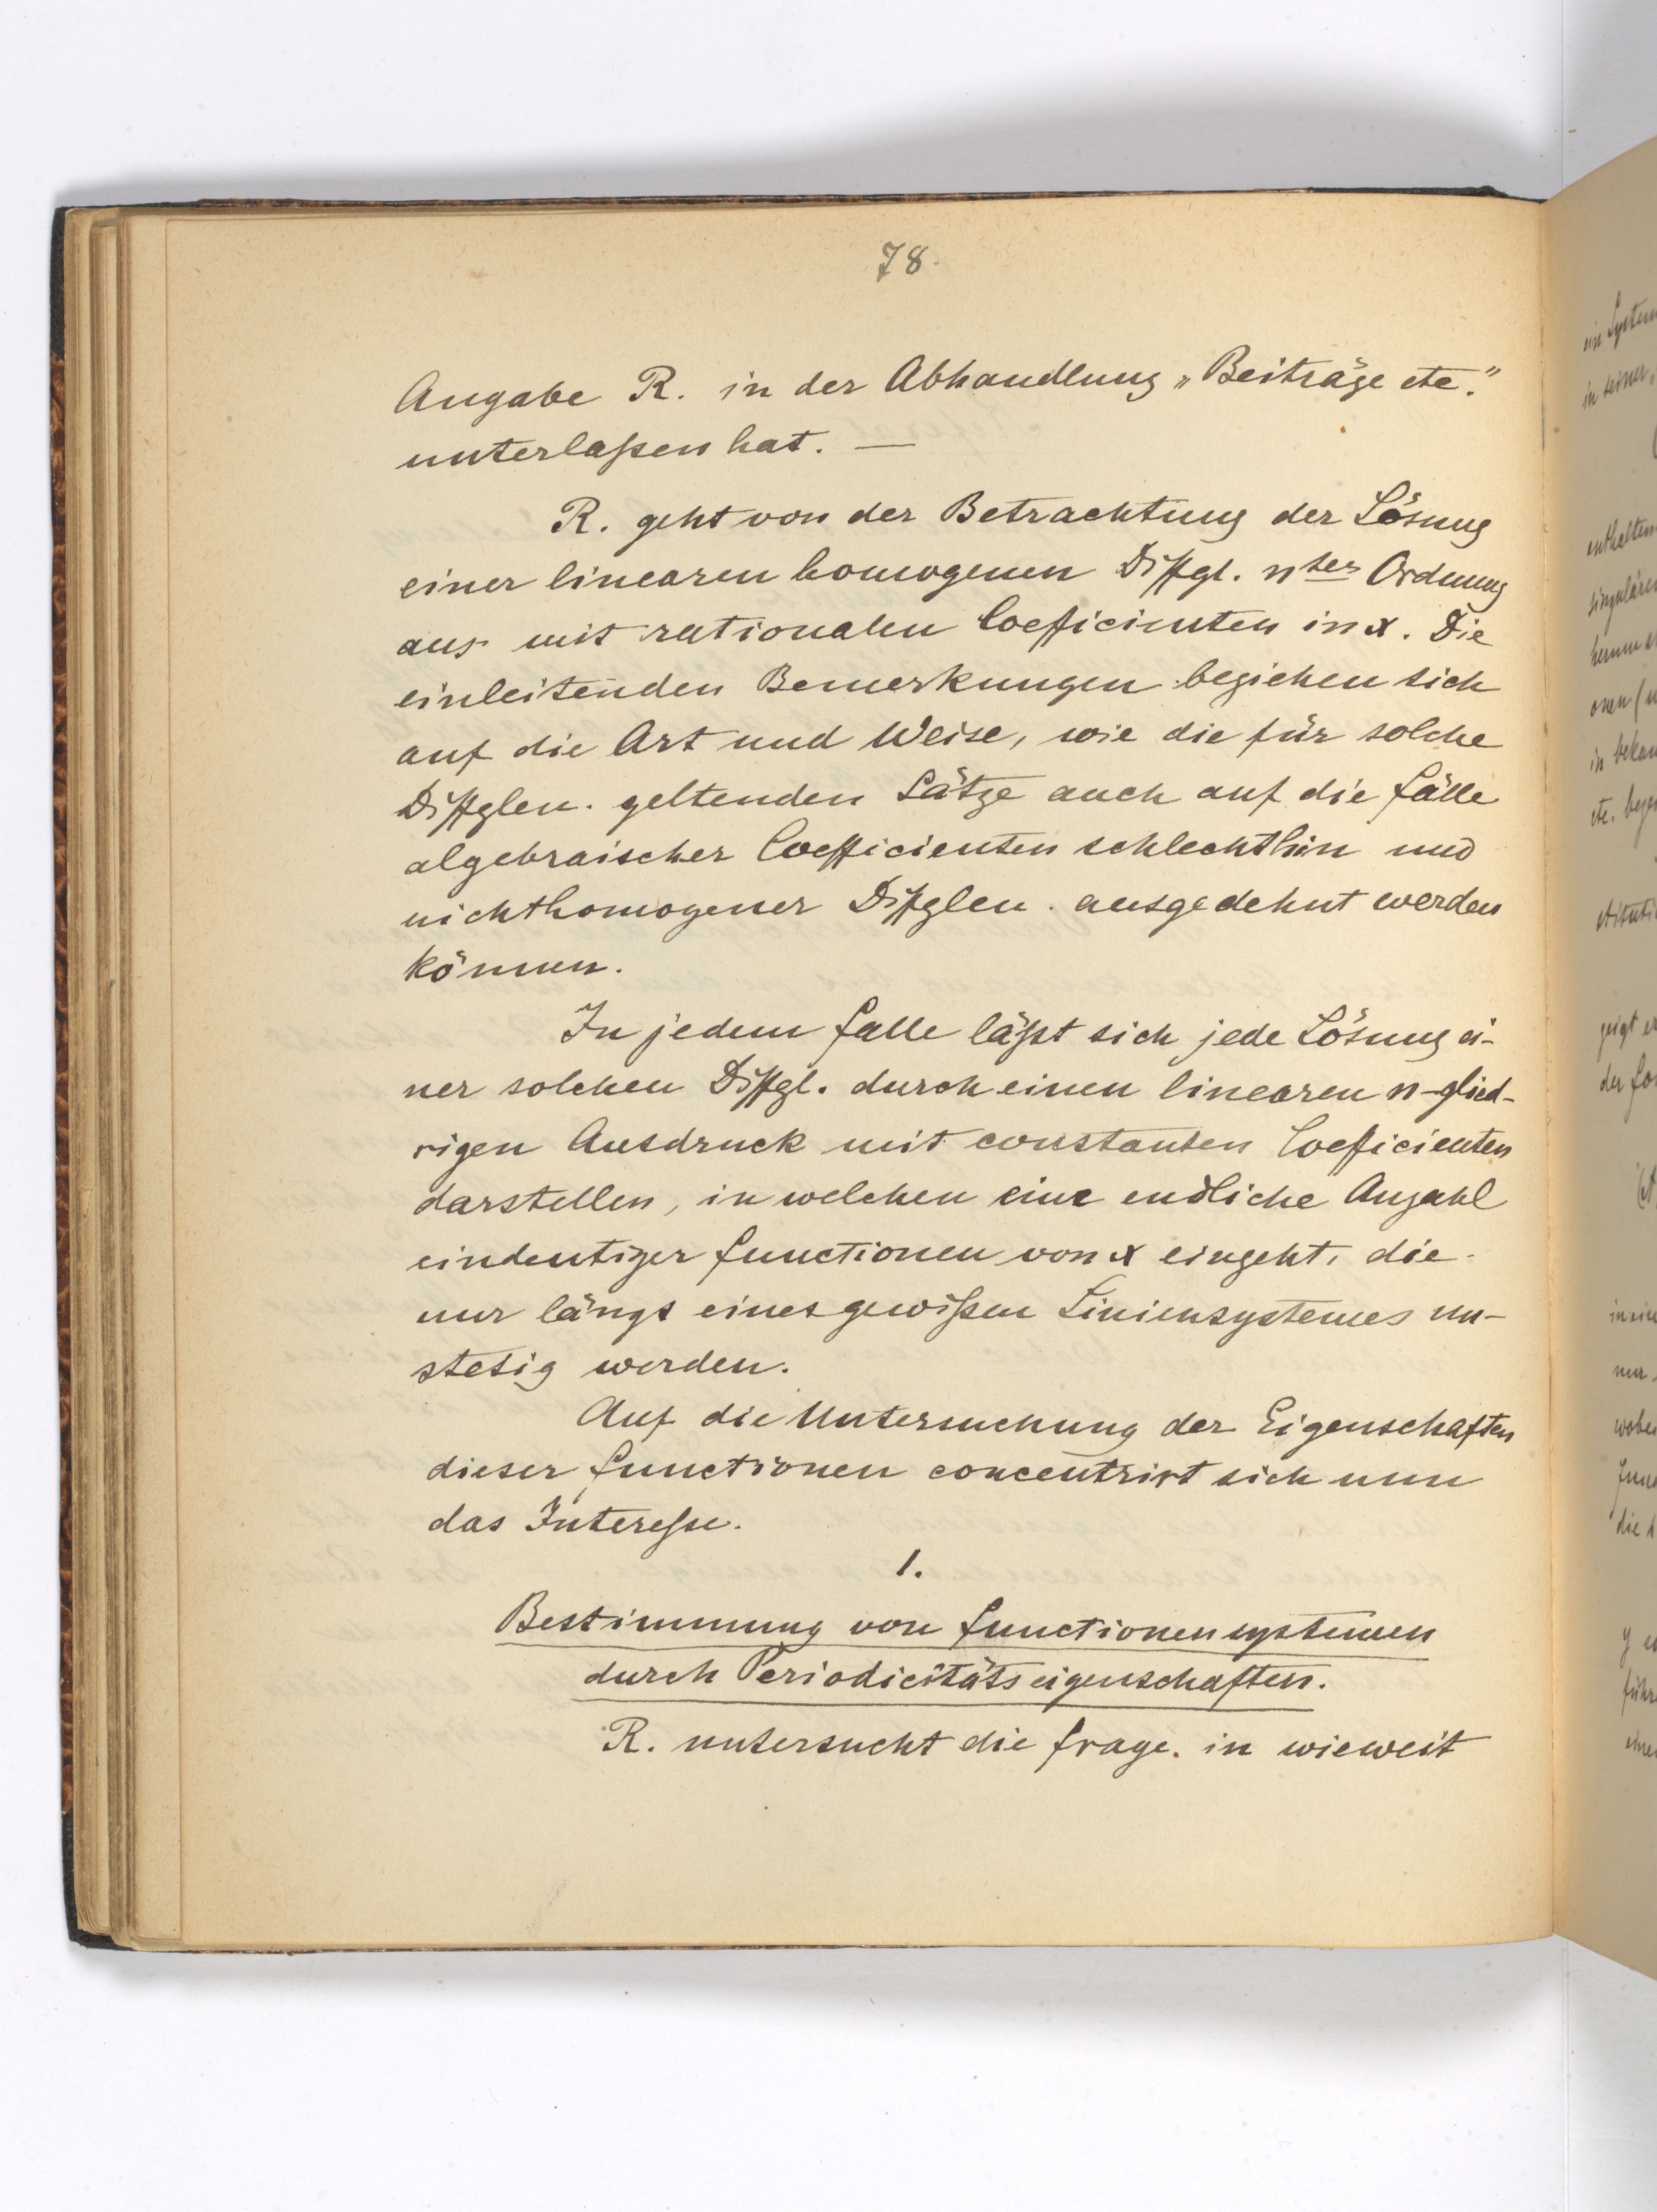 78.
Angabe R. in der Abhandlung „Beiträge etc."
unterlaßen hat. —
R. geht von der Betrachtung der Lösung
einer linearen homogenen Diffgl. nter Ordnung
aus mit rationalen Coefficienten in x. Die
einleitenden Bemerkungen beziehen sich
auf die Art und Weise, wie die für solche
Diffglen. geltenden Sätze auch auf die Fälle
algebraischer Coefficienten schlechthin und
nichthomogener Diffglen. ausgedehnt werden
können.
In jedem Falle läßt sich jede Lösung ei-
ner solchen Diffgl. durch einen linearen n-glied-
rigen Ausdruck mit constanten Coefficienten
darstellen, in welchen eine endliche Anzahl
eindeutiger Functionen von x eingeht, die
nur längs eines gewißen Liniensystemes un-
stetig werden.
Auf die Untersuchung der Eigenschaften
dieser Functionen concentrirt sich nun
das Interesse.
1.
Bestimmung von Functionensystemen
durch Periodicitätseigenschaften.
R. untersucht die Frage. in wieweit
ein System
in seiner
enthalten
singulären
in bekan
etc.
zeigt er
nur
die